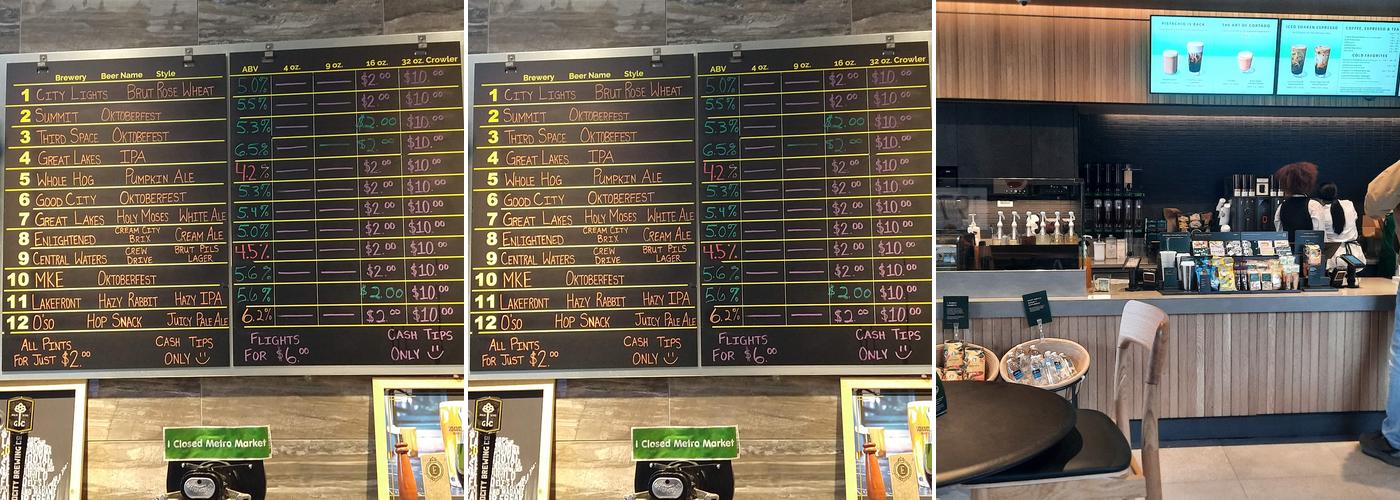 Brewery Beer Name Style
1 CITY LIGHTS BRUT ROSE WHEAT
2 SUMMIT OKTOBERFEST
3 THIRD SPACE OKTOBERFEST
4 GREAT LAKES IPA
5 WHOLE HOG PUMPKIN ALE
6 GOOD CITY OKTOBERFEST
7 GREAT LAKES HOLY MOSES WHITE ALE
8 ENLIGHTENED CREAM CITY BRIX CREAM ALE
9 CENTRAL WATERS CREW DRIVE BRUT PILS LAGER
10 MKE OKTOBERFEST
11 LAKEFRONT HAZY RABBIT HAZY IPA
12 O'SO HOP SNACK JUICY PALE ALE
ALL PINTS FOR JUST $2.00
CASH TIPS ONLY
ABV 4 oz. 9 oz. 16 oz. 32 oz. Crowler
5.0% $2.00 $10.00
5.5% $2.00 $10.00
5.3% $2.00 $10.00
6.5% $2.00 $10.00
4.2% $2.00 $10.00
5.3% $2.00 $10.00
5.4% $2.00 $10.00
5.0% $2.00 $10.00
4.5% $2.00 $10.00
5.6% $2.00 $10.00
5.6% $2.00 $10.00
6.2% $2.00 $10.00
FLIGHTS FOR $6.00
CASH TIPS ONLY
I Closed Metro Market
Brewery Beer Name Style
1 CITY LIGHTS BRUT ROSE WHEAT
2 SUMMIT OKTOBERFEST
3 THIRD SPACE OKTOBERFEST
4 GREAT LAKES IPA
5 WHOLE HOG PUMPKIN ALE
6 GOOD CITY OKTOBERFEST
7 GREAT LAKES HOLY MOSES WHITE ALE
8 ENLIGHTENED CREAM CITY BRIX CREAM ALE
9 CENTRAL WATERS CREW DRIVE BRUT PILS LAGER
10 MKE OKTOBERFEST
11 LAKEFRONT HAZY RABBIT HAZY IPA
12 O'SO HOP SNACK JUICY PALE ALE
ALL PINTS FOR JUST $2.00
CASH TIPS ONLY
ABV 4 oz. 9 oz. 16 oz. 32 oz. Crowler
5.0% $2.00 $10.00
5.5% $2.00 $10.00
5.3% $2.00 $10.00
6.5% $2.00 $10.00
4.2% $2.00 $10.00
5.3% $2.00 $10.00
5.4% $2.00 $10.00
5.0% $2.00 $10.00
4.5% $2.00 $10.00
5.6% $2.00 $10.00
5.6% $2.00 $10.00
6.2% $2.00 $10.00
FLIGHTS FOR $6.00
CASH TIPS ONLY
I Closed Metro Market
PISTACHIO IS BACK
THE ART OF CORTADO
ICED SHAKEN ESPRESSO
COFFEE, ESPRESSO & TEA
COLD FAVORITES